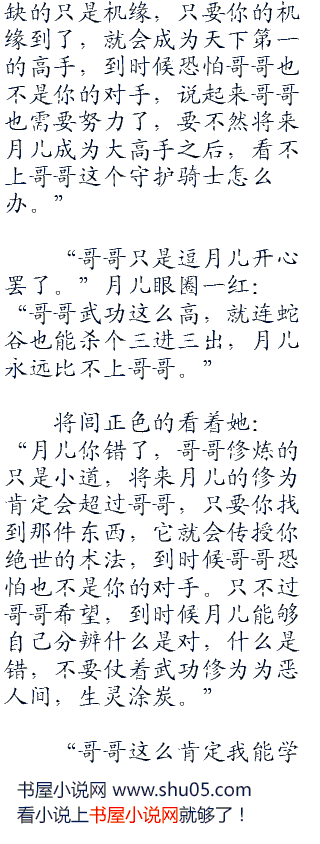 缺的只是机缘，只要你的机
缘到了，就会成为天下第一
的高手，到时候恐怕哥哥也
不是你的对手，说起来哥哥
也需要努力了，要不然将来
月儿成为大高手之后，看不
上哥哥这个守护骑士怎么
办。”
“哥哥只是逗月儿开心
罢了。”月儿眼圈一红：
“哥哥武功这么高，就连蛇
谷也能杀个三进三出，月儿
永远比不上哥哥。”
将闾正色的看着她：
“月儿你错了，哥哥修炼的
只是小道，将来月儿的修为
肯定会超过哥哥，只要你找
到那件东西，它就会传授你
绝世的术法，到时候哥哥恐
怕也不是你的对手。只不过
哥哥希望，到时候月儿能够
自己分辨什么是对，什么是
错，不要仗着武功修为为恶
人间，生灵涂炭。”
“哥哥这么肯定我能学
书屋小说网 www.shu05.com
看小说上书屋小说网就够了！